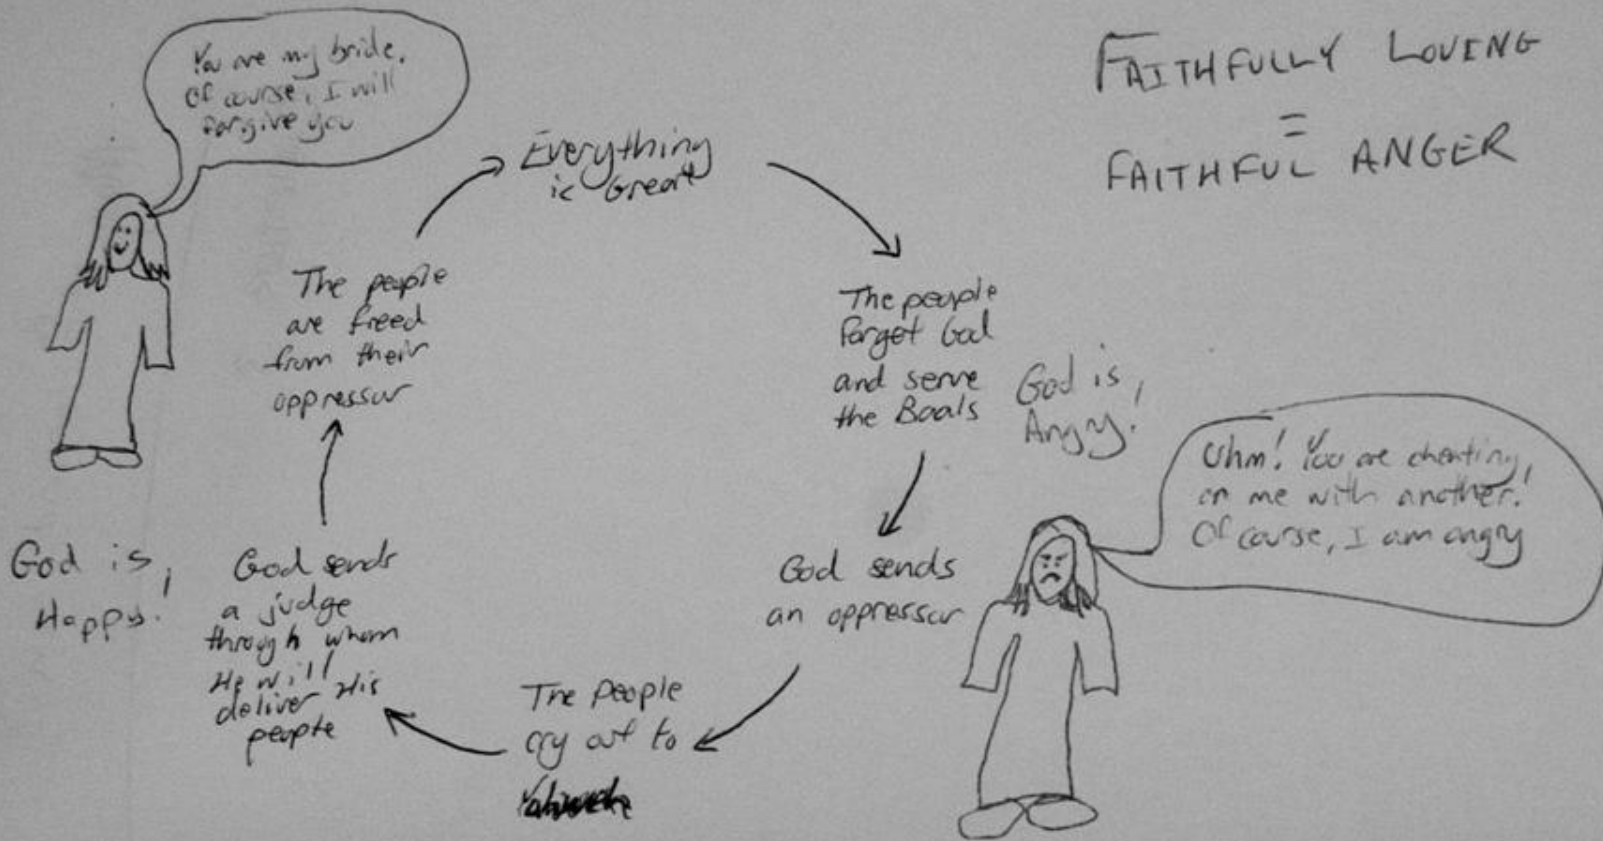 You are my bride.
Of course, I will
forgive you
FAITHFULLY LOVING
=
FAITHFUL ANGER
Everything
is Great
The people
forget God
and serve
the Baals
God is
Angry!
Uhm! You are cheating
on me with another!
Of course, I am angry
God sends
an oppressor
The people
cry out to
God sends
a judge
through whom
He will
deliver His
people
God is
Happy!
The people
are freed
from their
oppressor